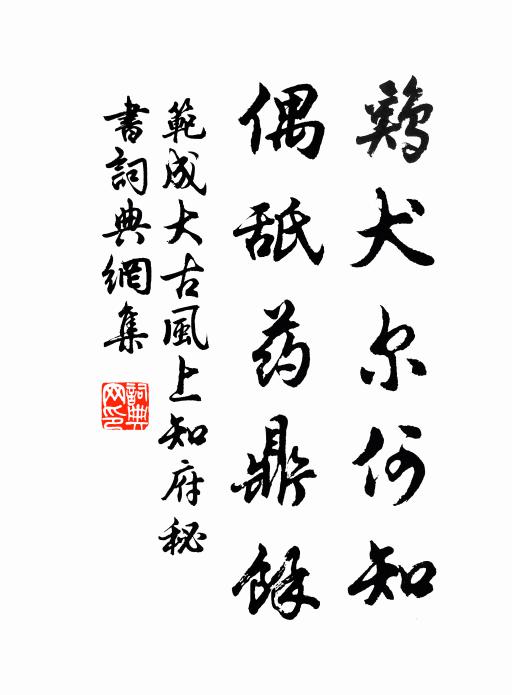 鷄犬尔何知
偶舐药鼎餘
範成大古風上知府秘
書詞典網集
詞典
网印